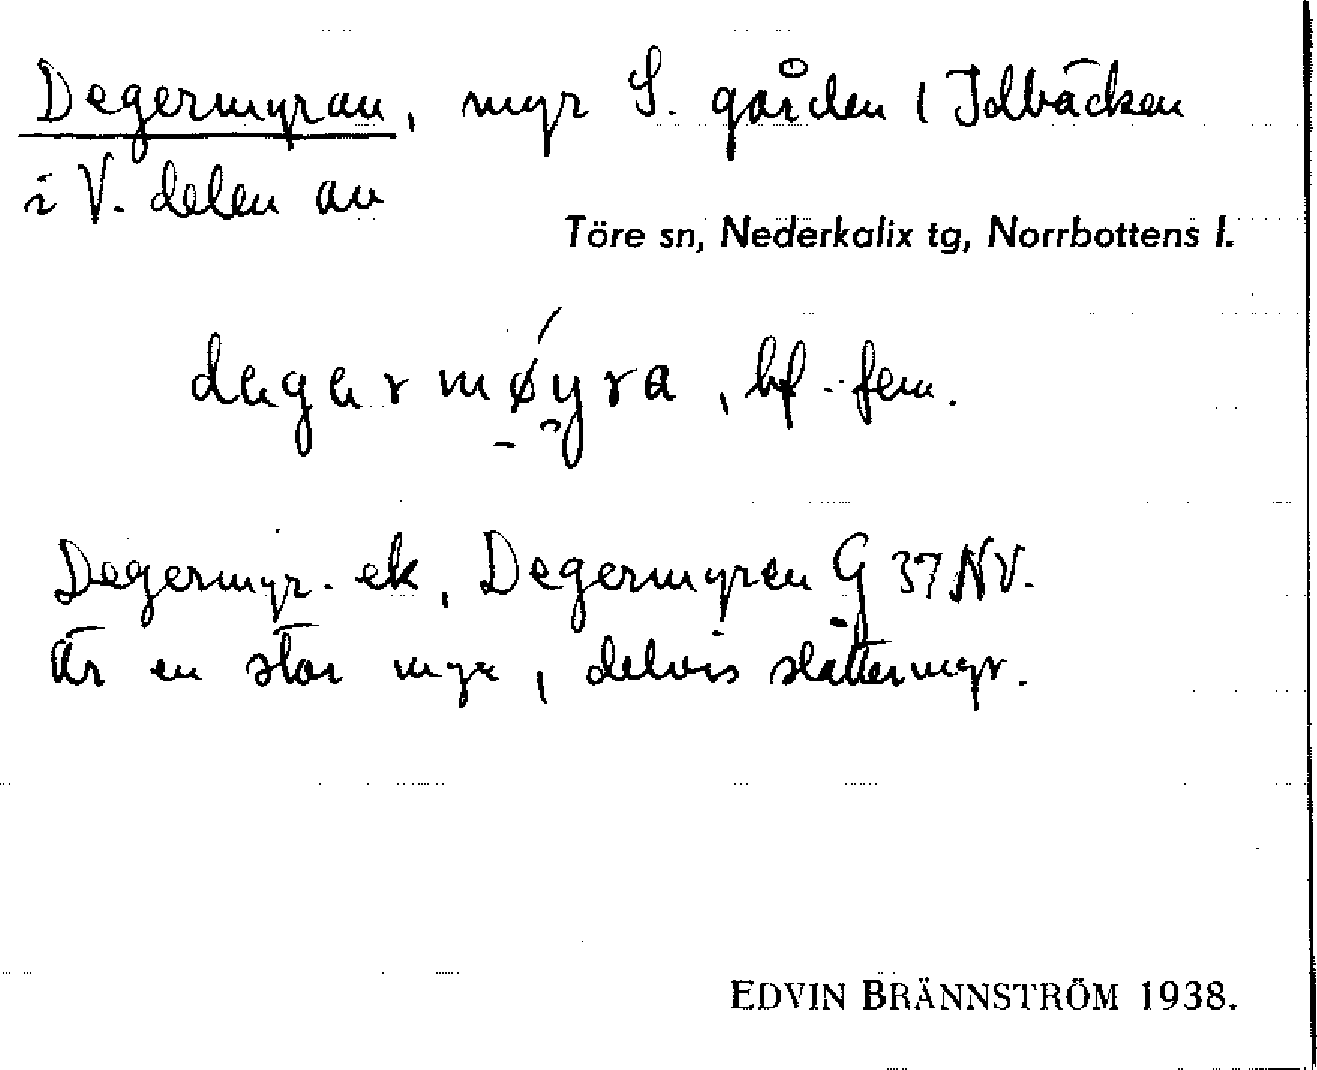 Degermyran, myr S. gården 1 Idbäcken
i V. delen av
Töre sn, Nederkalix tg, Norrbottens l.
degermøyra, bf. fem.
Degermyr. ek, Degermyren G 37 NV.
Är en stor myr, delvis slåttermyr.
EDVIN BRÄNNSTRÖM 1938.